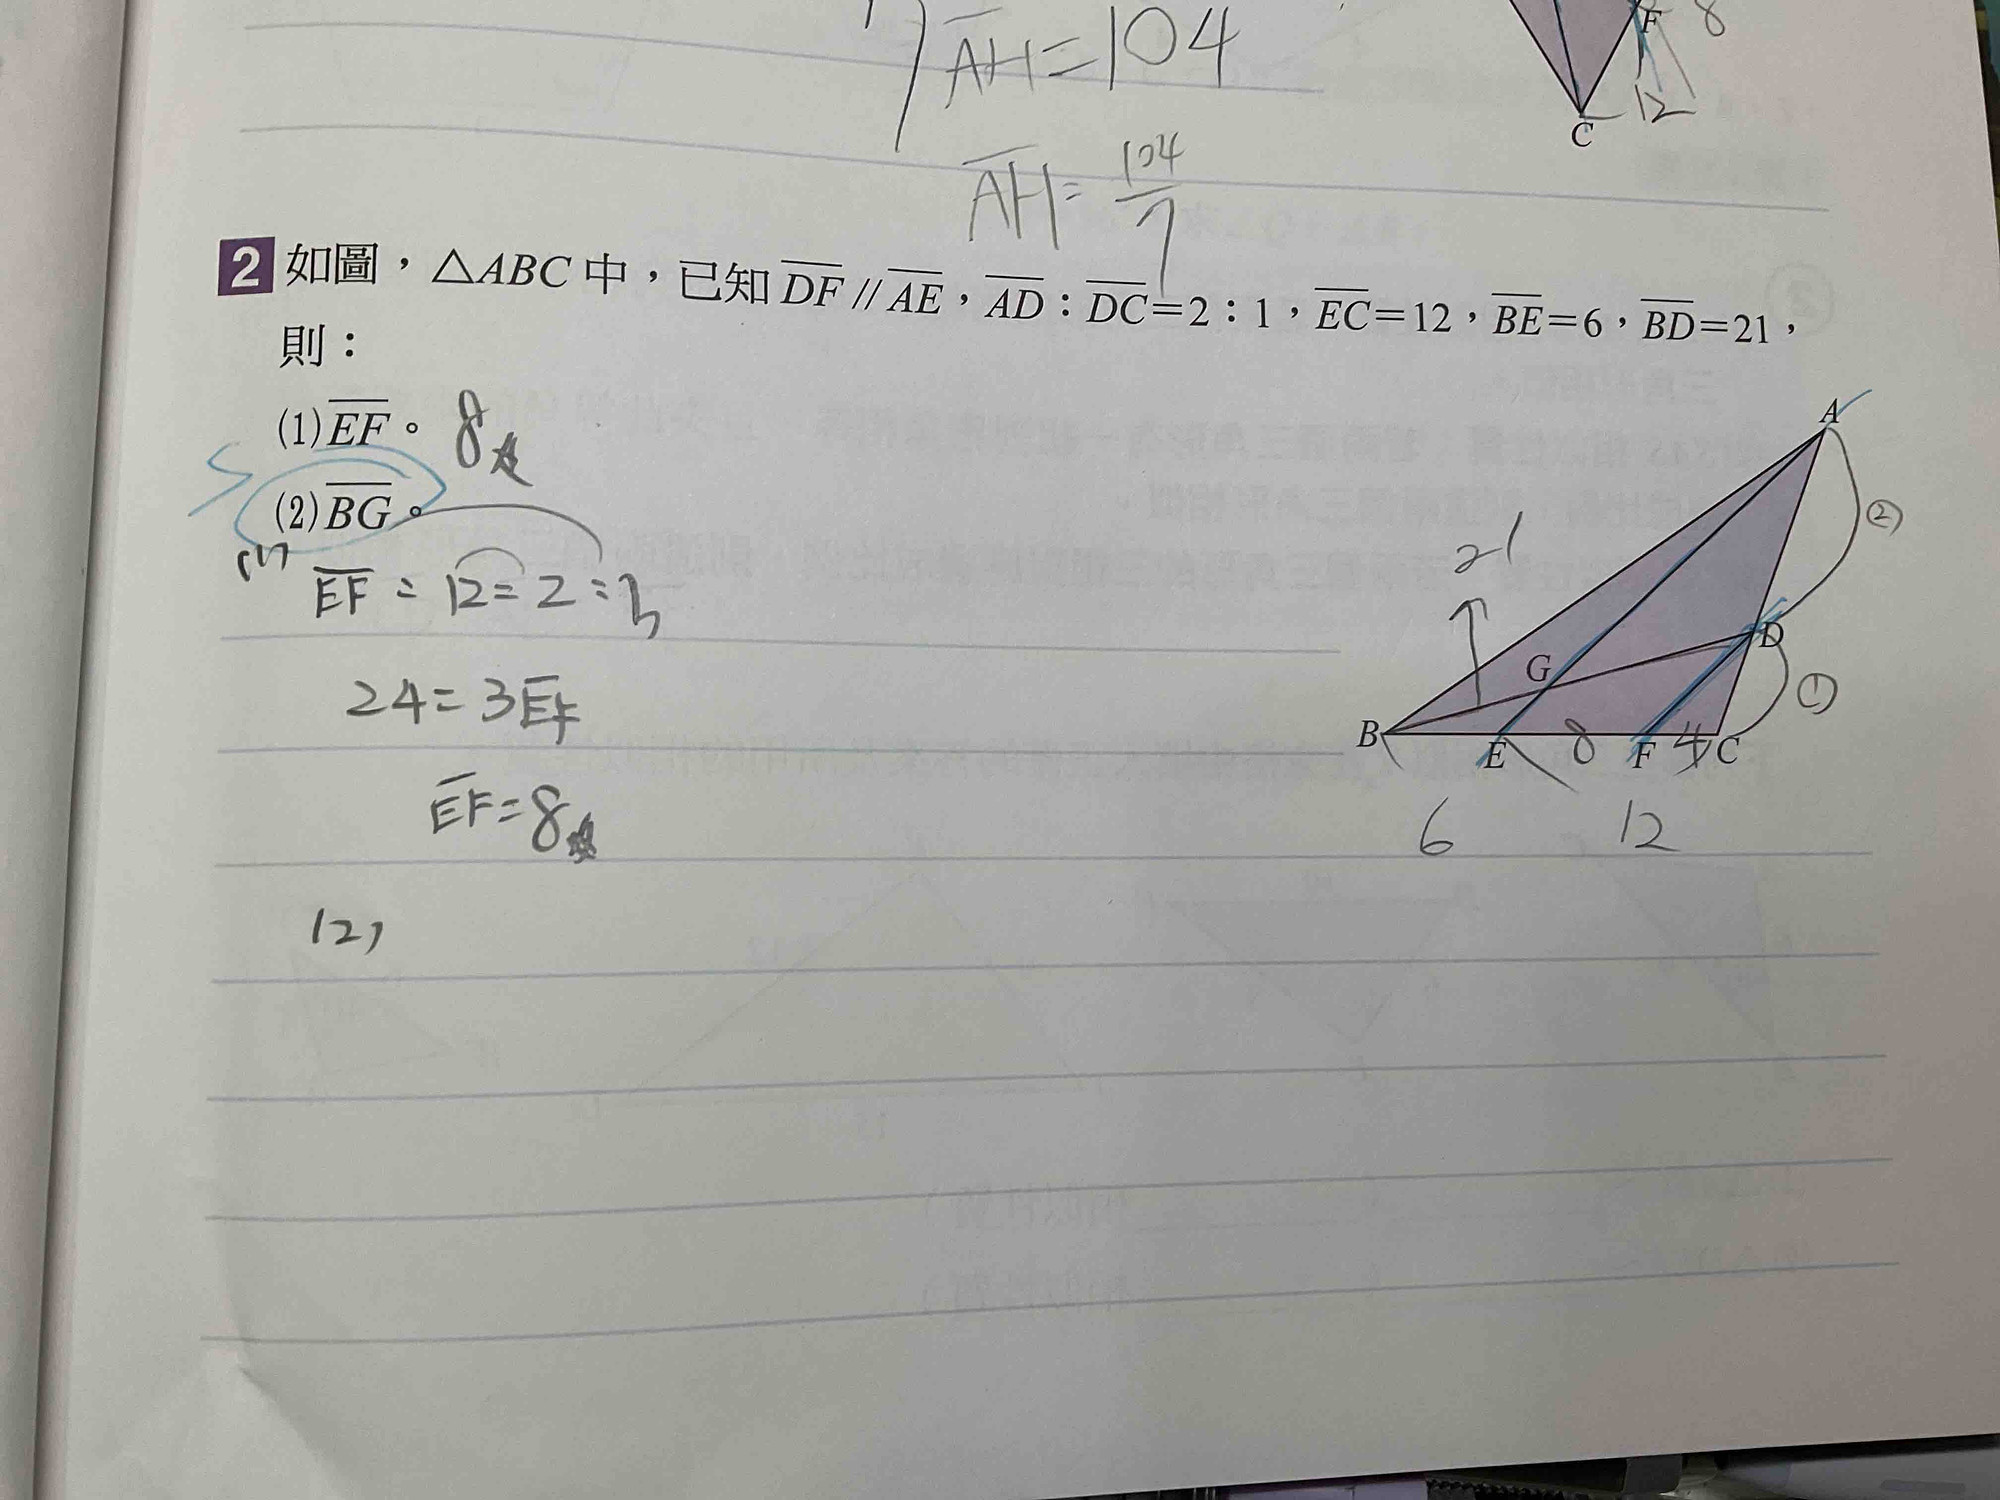 AH=104
AH=104/7
F 8
12
C
2 如圖，△ABC 中，已知 DF // AE，AD：DC=2：1，EC=12，BE=6，BD=21，
則：
(1)EF。 8
(2)BG。
(1)
EF : 12 = 2 : 3
24=3EF
EF=8
(2)
A
②
21
D
G
①
B E 8 F 4 C
6 12